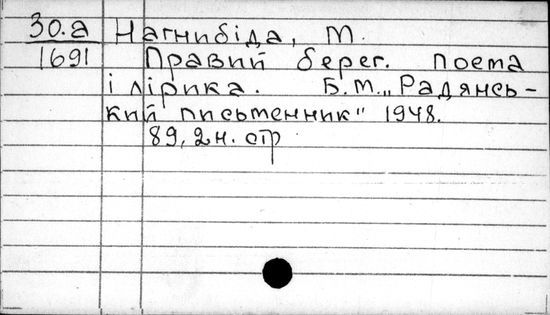 30.а Нагнибіда, М.
1691 Правий берег. Поема
і лірика. Б.М. „Радянсь-
кий письменник" 1948.
89, 2н. стр